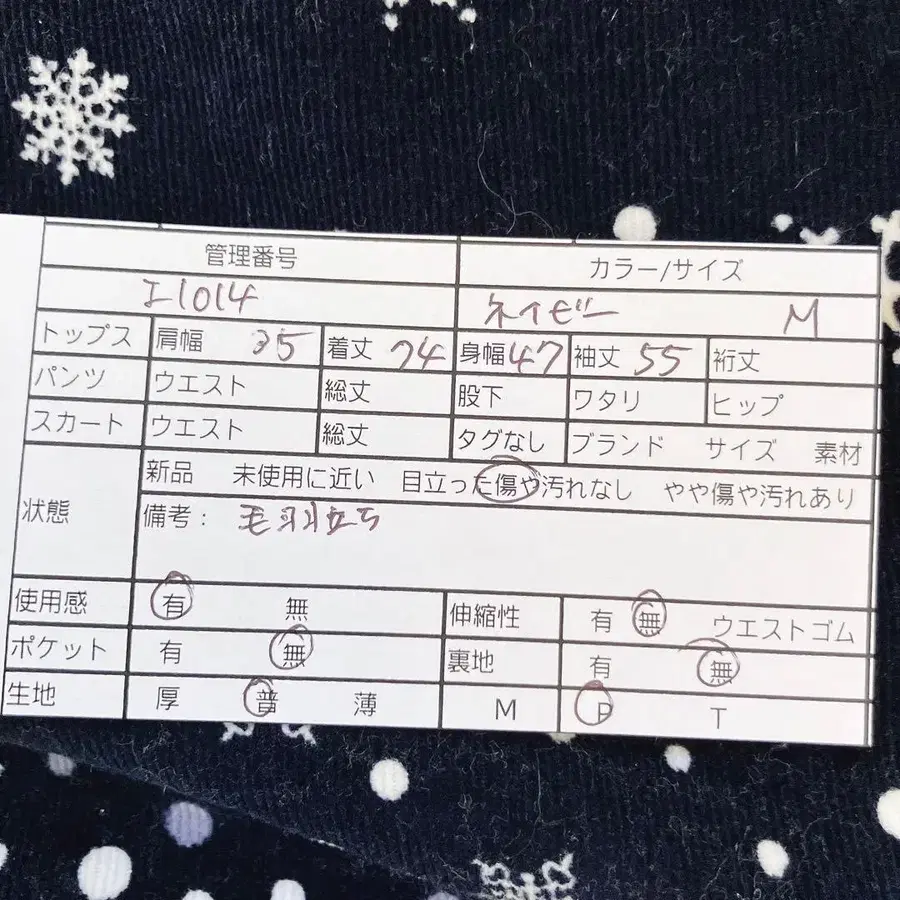 管理番号 カラー/サイズ
エ1014 ネイビー M
トップス 肩幅 35 着丈 74 身幅 47 袖丈 55 裄丈
パンツ ウエスト 総丈 股下 ワタリ ヒップ
スカート ウエスト 総丈 タグなし ブランド サイズ 素材
状態 新品 未使用に近い 目立った傷や汚れなし やや傷や汚れあり
備考： 毛羽立ち
使用感 有 無 伸縮性 有 無 ウエストゴム
ポケット 有 無 裏地 有 無
生地 厚 普 薄 M P T